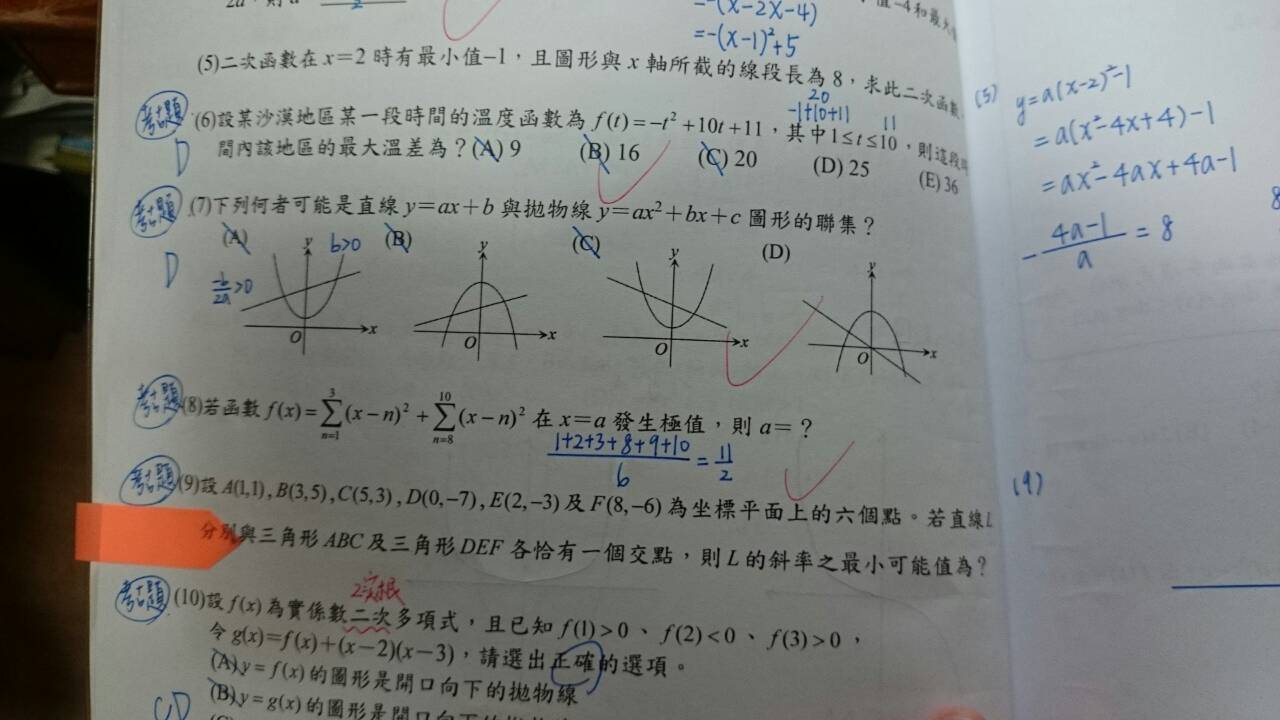 =-(x-2x-4)
值-4和最大
=-(x-1)²+5
(5)二次函數在 x=2 時有最小值-1,且圖形與 x 軸所截的線段長為 8,求此二次函數
考古題
(6)設某沙漠地區某一段時間的溫度函數為 f(t)=-t²+10t+11,其中1≤t≤10,則這段時
20
-1+10+11
11
D
間內該地區的最大溫差為?(A) 9 (B) 16 (C) 20 (D) 25 (E) 36
考古題
(7)下列何者可能是直線 y=ax+b 與拋物線 y=ax²+bx+c 圖形的聯集?
D
(A) (B) (C) (D)
b>0
-b/2a>0
y y y y
O x O x O x O x
考古題
(8)若函數 f(x)=∑_{n=1}^{3}(x-n)²+∑_{n=8}^{10}(x-n)² 在 x=a 發生極值,則 a=?
1+2+3+8+9+10/6=11/2
考古題
(9)設 A(1,1), B(3,5), C(5,3), D(0,-7), E(2,-3)及 F(8,-6)為坐標平面上的六個點。若直線L
分別與三角形 ABC 及三角形 DEF 各恰有一個交點,則 L 的斜率之最小可能值為?
2實根
考古題
(10)設 f(x)為實係數二次多項式,且已知 f(1)>0、f(2)<0、f(3)>0,
令 g(x)=f(x)+(x-2)(x-3),請選出正確的選項。
(A) y=f(x)的圖形是開口向下的拋物線
(B) y=g(x)的圖形是開口向下的拋物線
CD
(5)
y=a(x-2)²-1
=a(x²-4x+4)-1
=ax²-4ax+4a-1
-4a-1/a=8
8
(9)